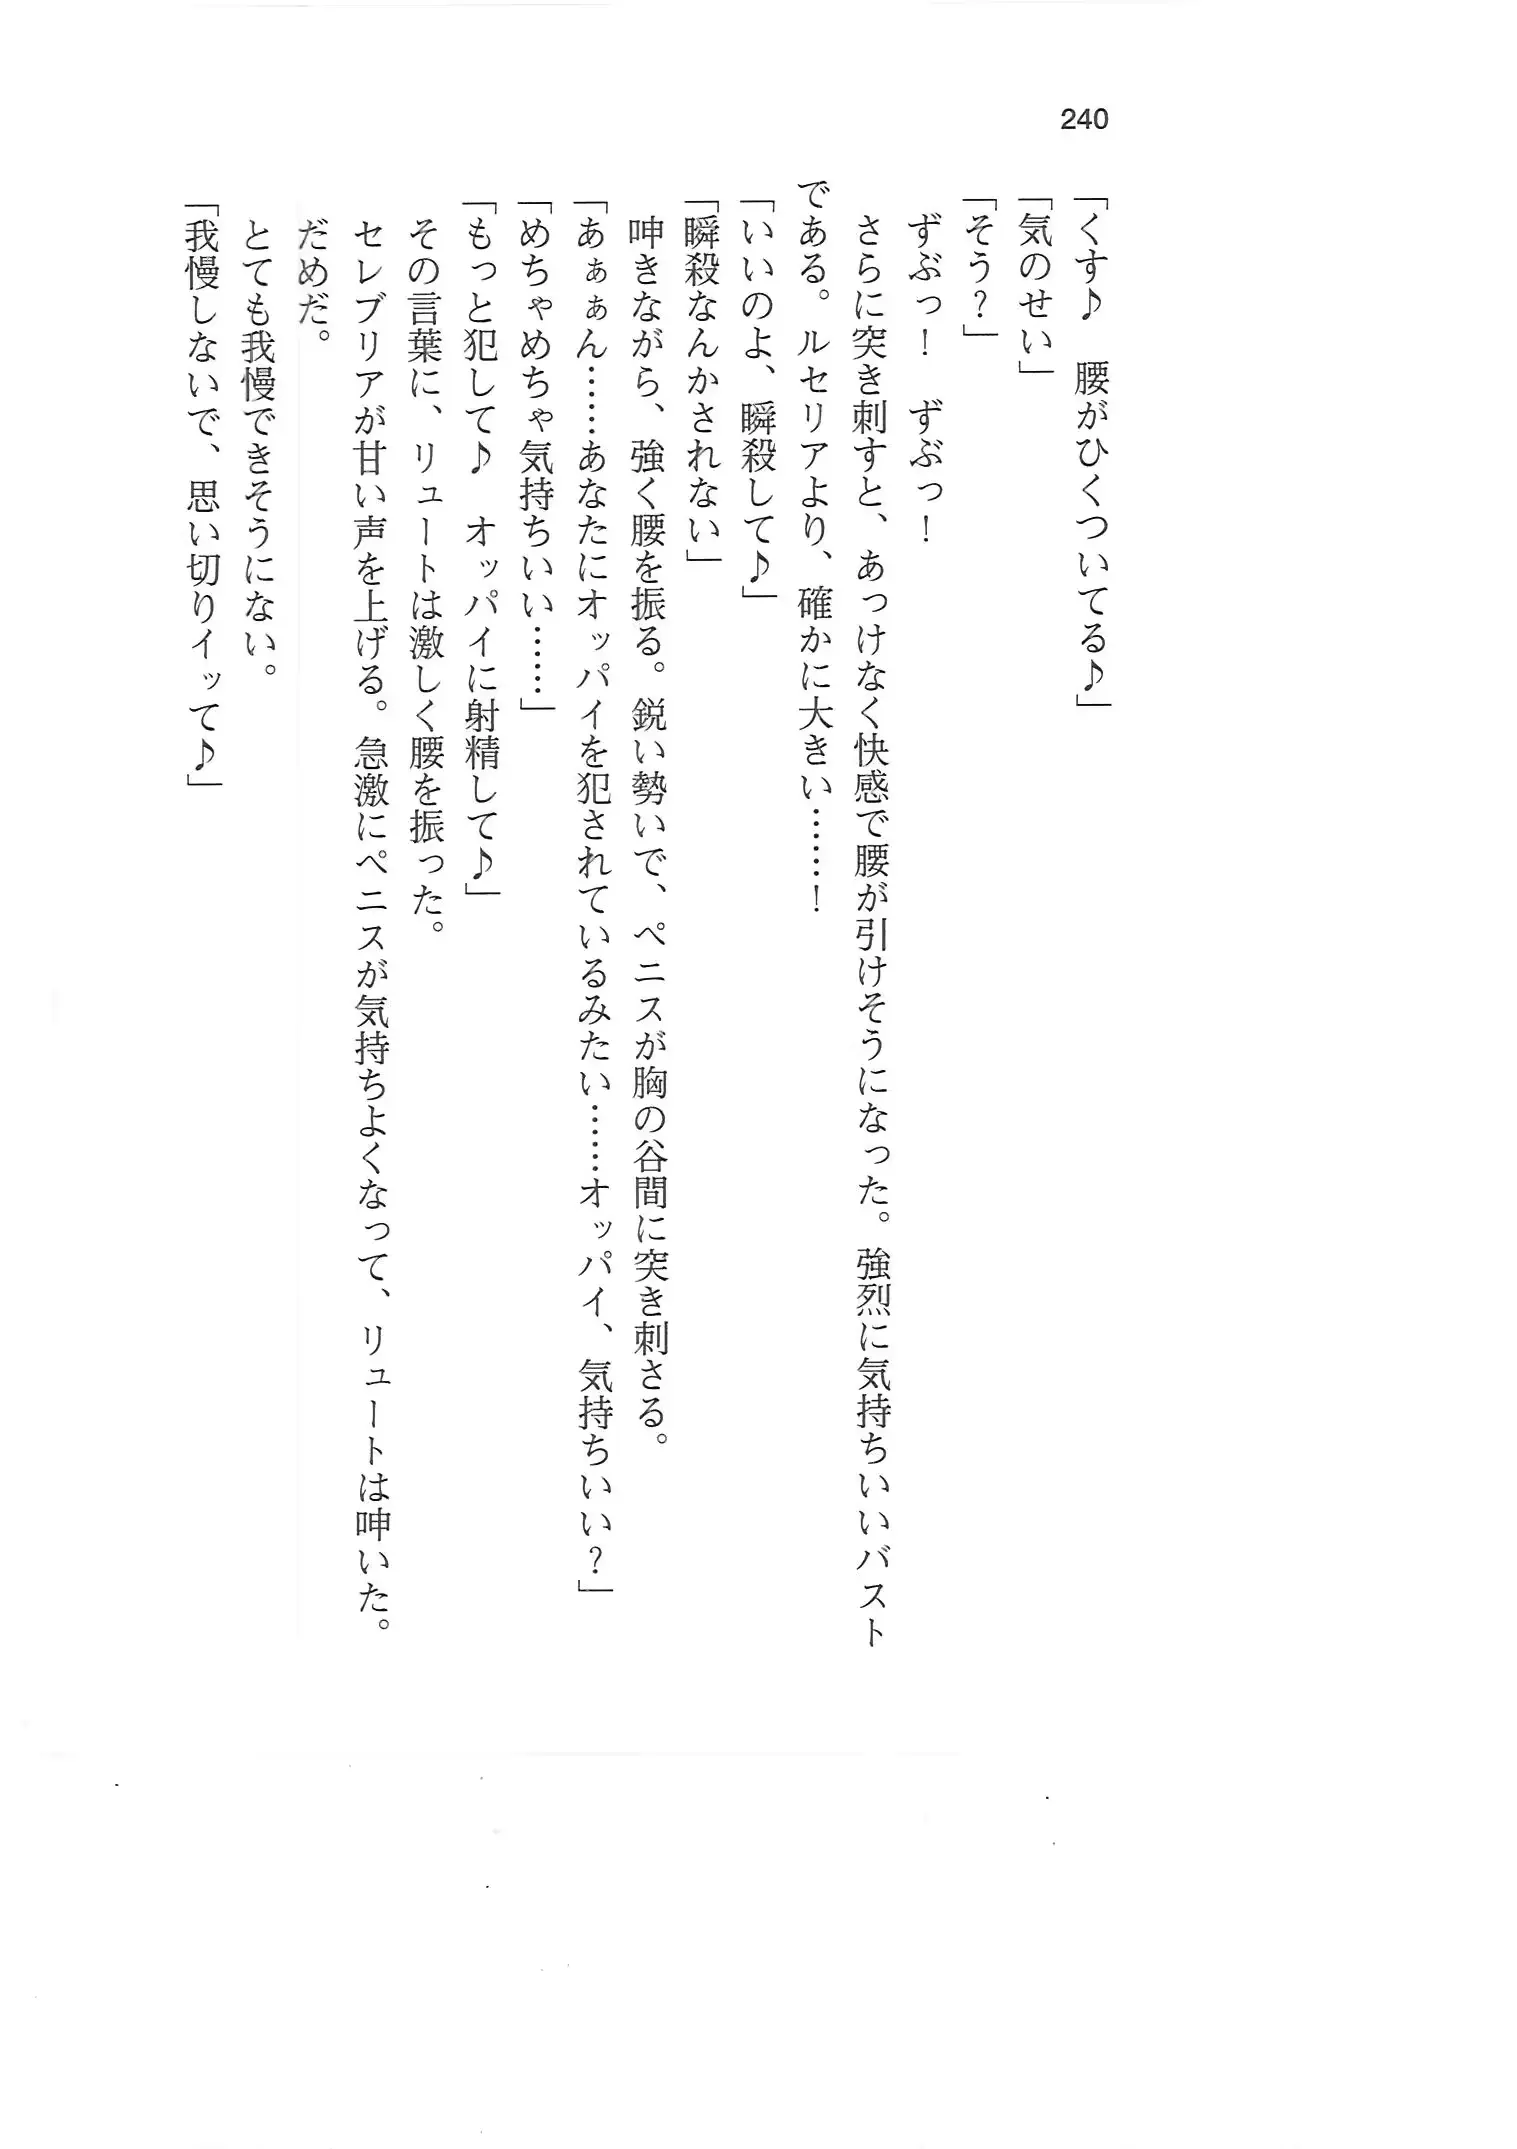 240
「くす♪　腰がひくついてる♪」
「気のせい」
「そう？」
ずぶっ！　ずぶっ！
さらに突き刺すと、あっけなく快感で腰が引けそうになった。強烈に気持ちいいバスト
である。ルセリアより、確かに大きい……！
「いいのよ、瞬殺して♪」
「瞬殺なんかされない」
呻きながら、強く腰を振る。鋭い勢いで、ペニスが胸の谷間に突き刺さる。
「あぁぁん……あなたにオッパイを犯されているみたい……オッパイ、気持ちいい？」
「めちゃめちゃ気持ちいい……」
「もっと犯して♪　オッパイに射精して♪」
その言葉に、リュートは激しく腰を振った。
セレブリアが甘い声を上げる。急激にペニスが気持ちよくなって、リュートは呻いた。
だめだ。
とても我慢できそうにない。
「我慢しないで、思い切りイッて♪」